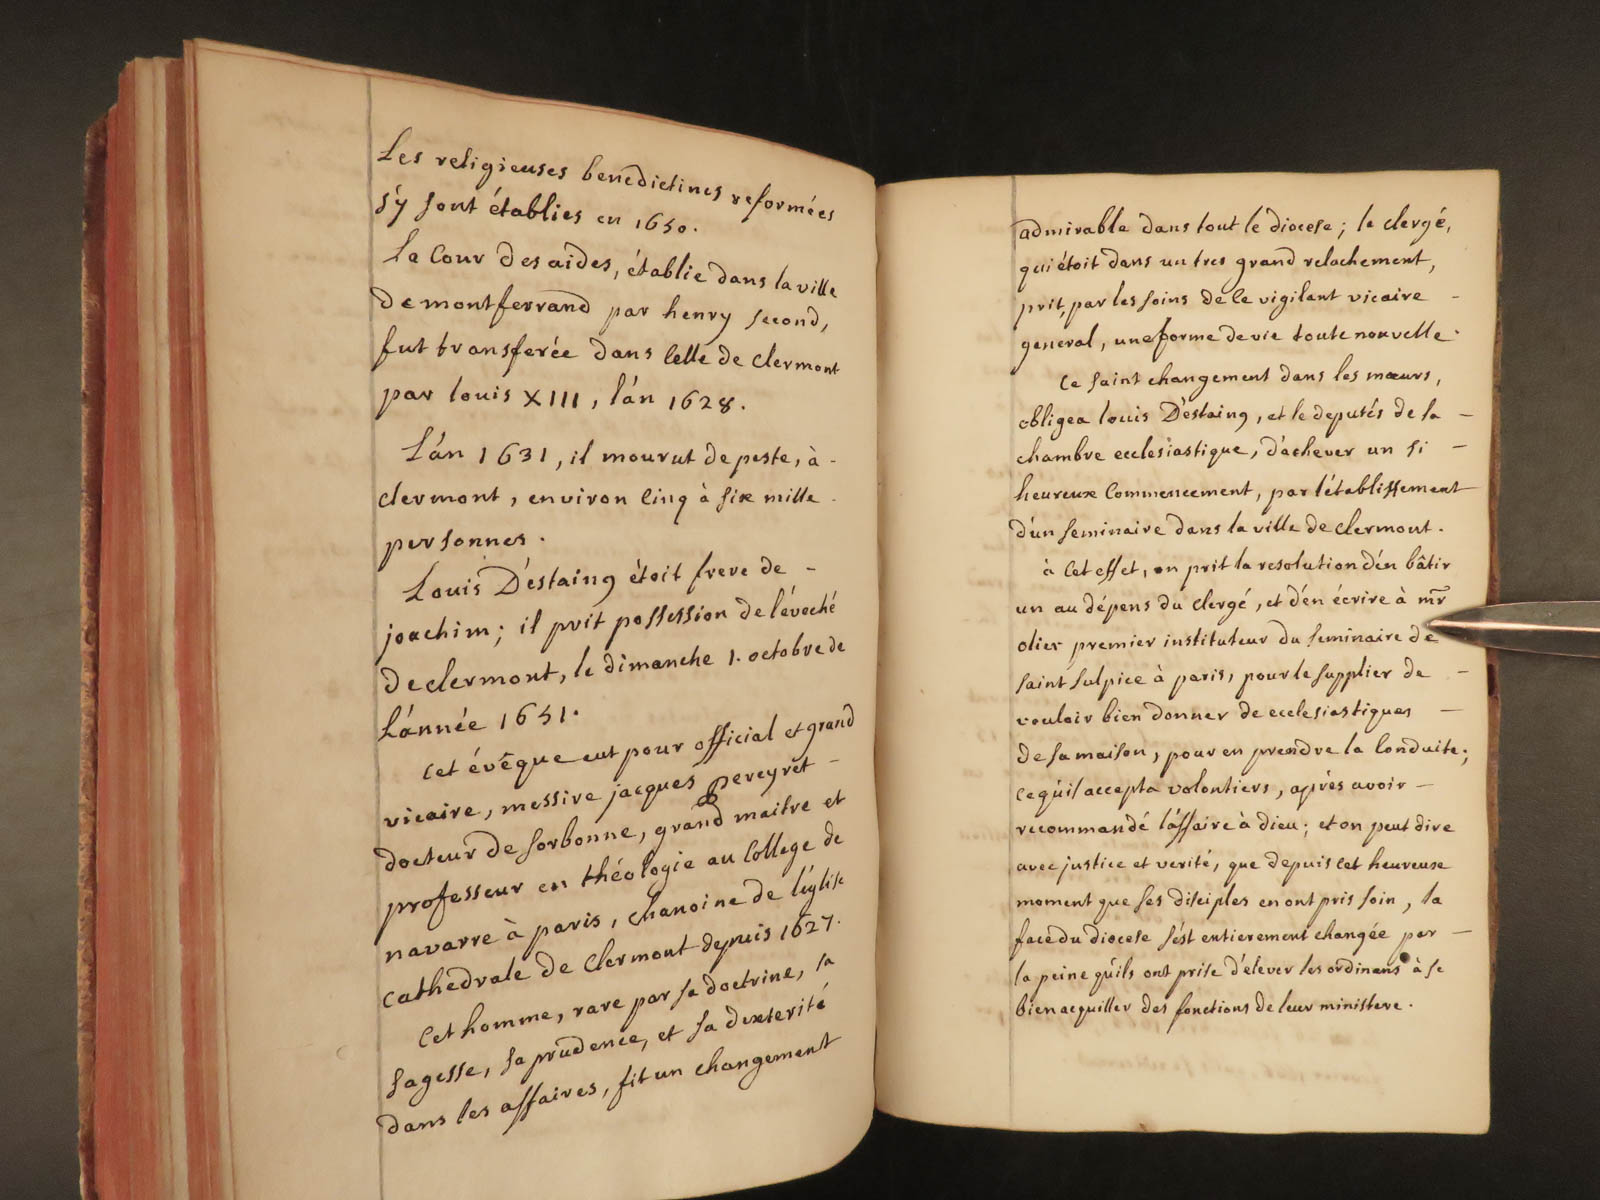 Les religieuses benedictines reformées
s'y sont établies en 1650.
La Cour des aides, établie dans la ville
de montferrand par henry second,
fut transferée dans Celle de Clermont
par louis XIII, l'án 1628.
L'án 1631, il mourut de peste, à -
Clermont, environ Cinq à six mille -
personnes.
Louis D'estaing étoit frere de -
joachim; il prit possession de l'évêché
de clermont, le dimanche 1. octobre de
L'année 1651.
Cet évêque eut pour official et grand
vicaire, messire jacques pereyret -
docteur de sorbonne, grand maitre et
professeur en théologie au College de
navarre à paris, chanoine de l'église
cathedrale de Clermont depuis 1627.
Cet homme, rare par sa doctrine, sa
sagesse, sa prudence, et sa dexterité
dans les affaires, fit un changement
admirable dans tout le diocese; le clergé,
qui étoit dans un tres grand relachement,
prit, par les soins de Ce vigilant vicaire -
general, une forme de vie toute nouvelle.
Ce saint changement dans les mœurs,
obligea louis D'estaing, et le deputés de sa -
chambre ecclesiastique, d'achever un si -
heureux Commencement, par l'établissement
d'un seminaire dans la ville de Clermont.
à Cet effet, on prit la resolution d'én bâtir
un au dépens du clergé, et d'én écrire à mr
olier premier instituteur du seminaire de
saint sulpice à paris, pour le supplier de -
vouloir bien donner de ecclesiastiques -
de sa maison, pour en prendre la Conduite;
ce qu'il accepta volontiers, aprés avoir -
recommandé l'affaire à dieu; et on peut dire
avec justice et verité, que depuis cet heureuse
moment que ses disciples en ont pris soin, la
face du diocese s'ést entierement changée par -
la peine qu'ils ont prise d'élever les ordinans à se
bien acquiller des fonctions de leur ministere.